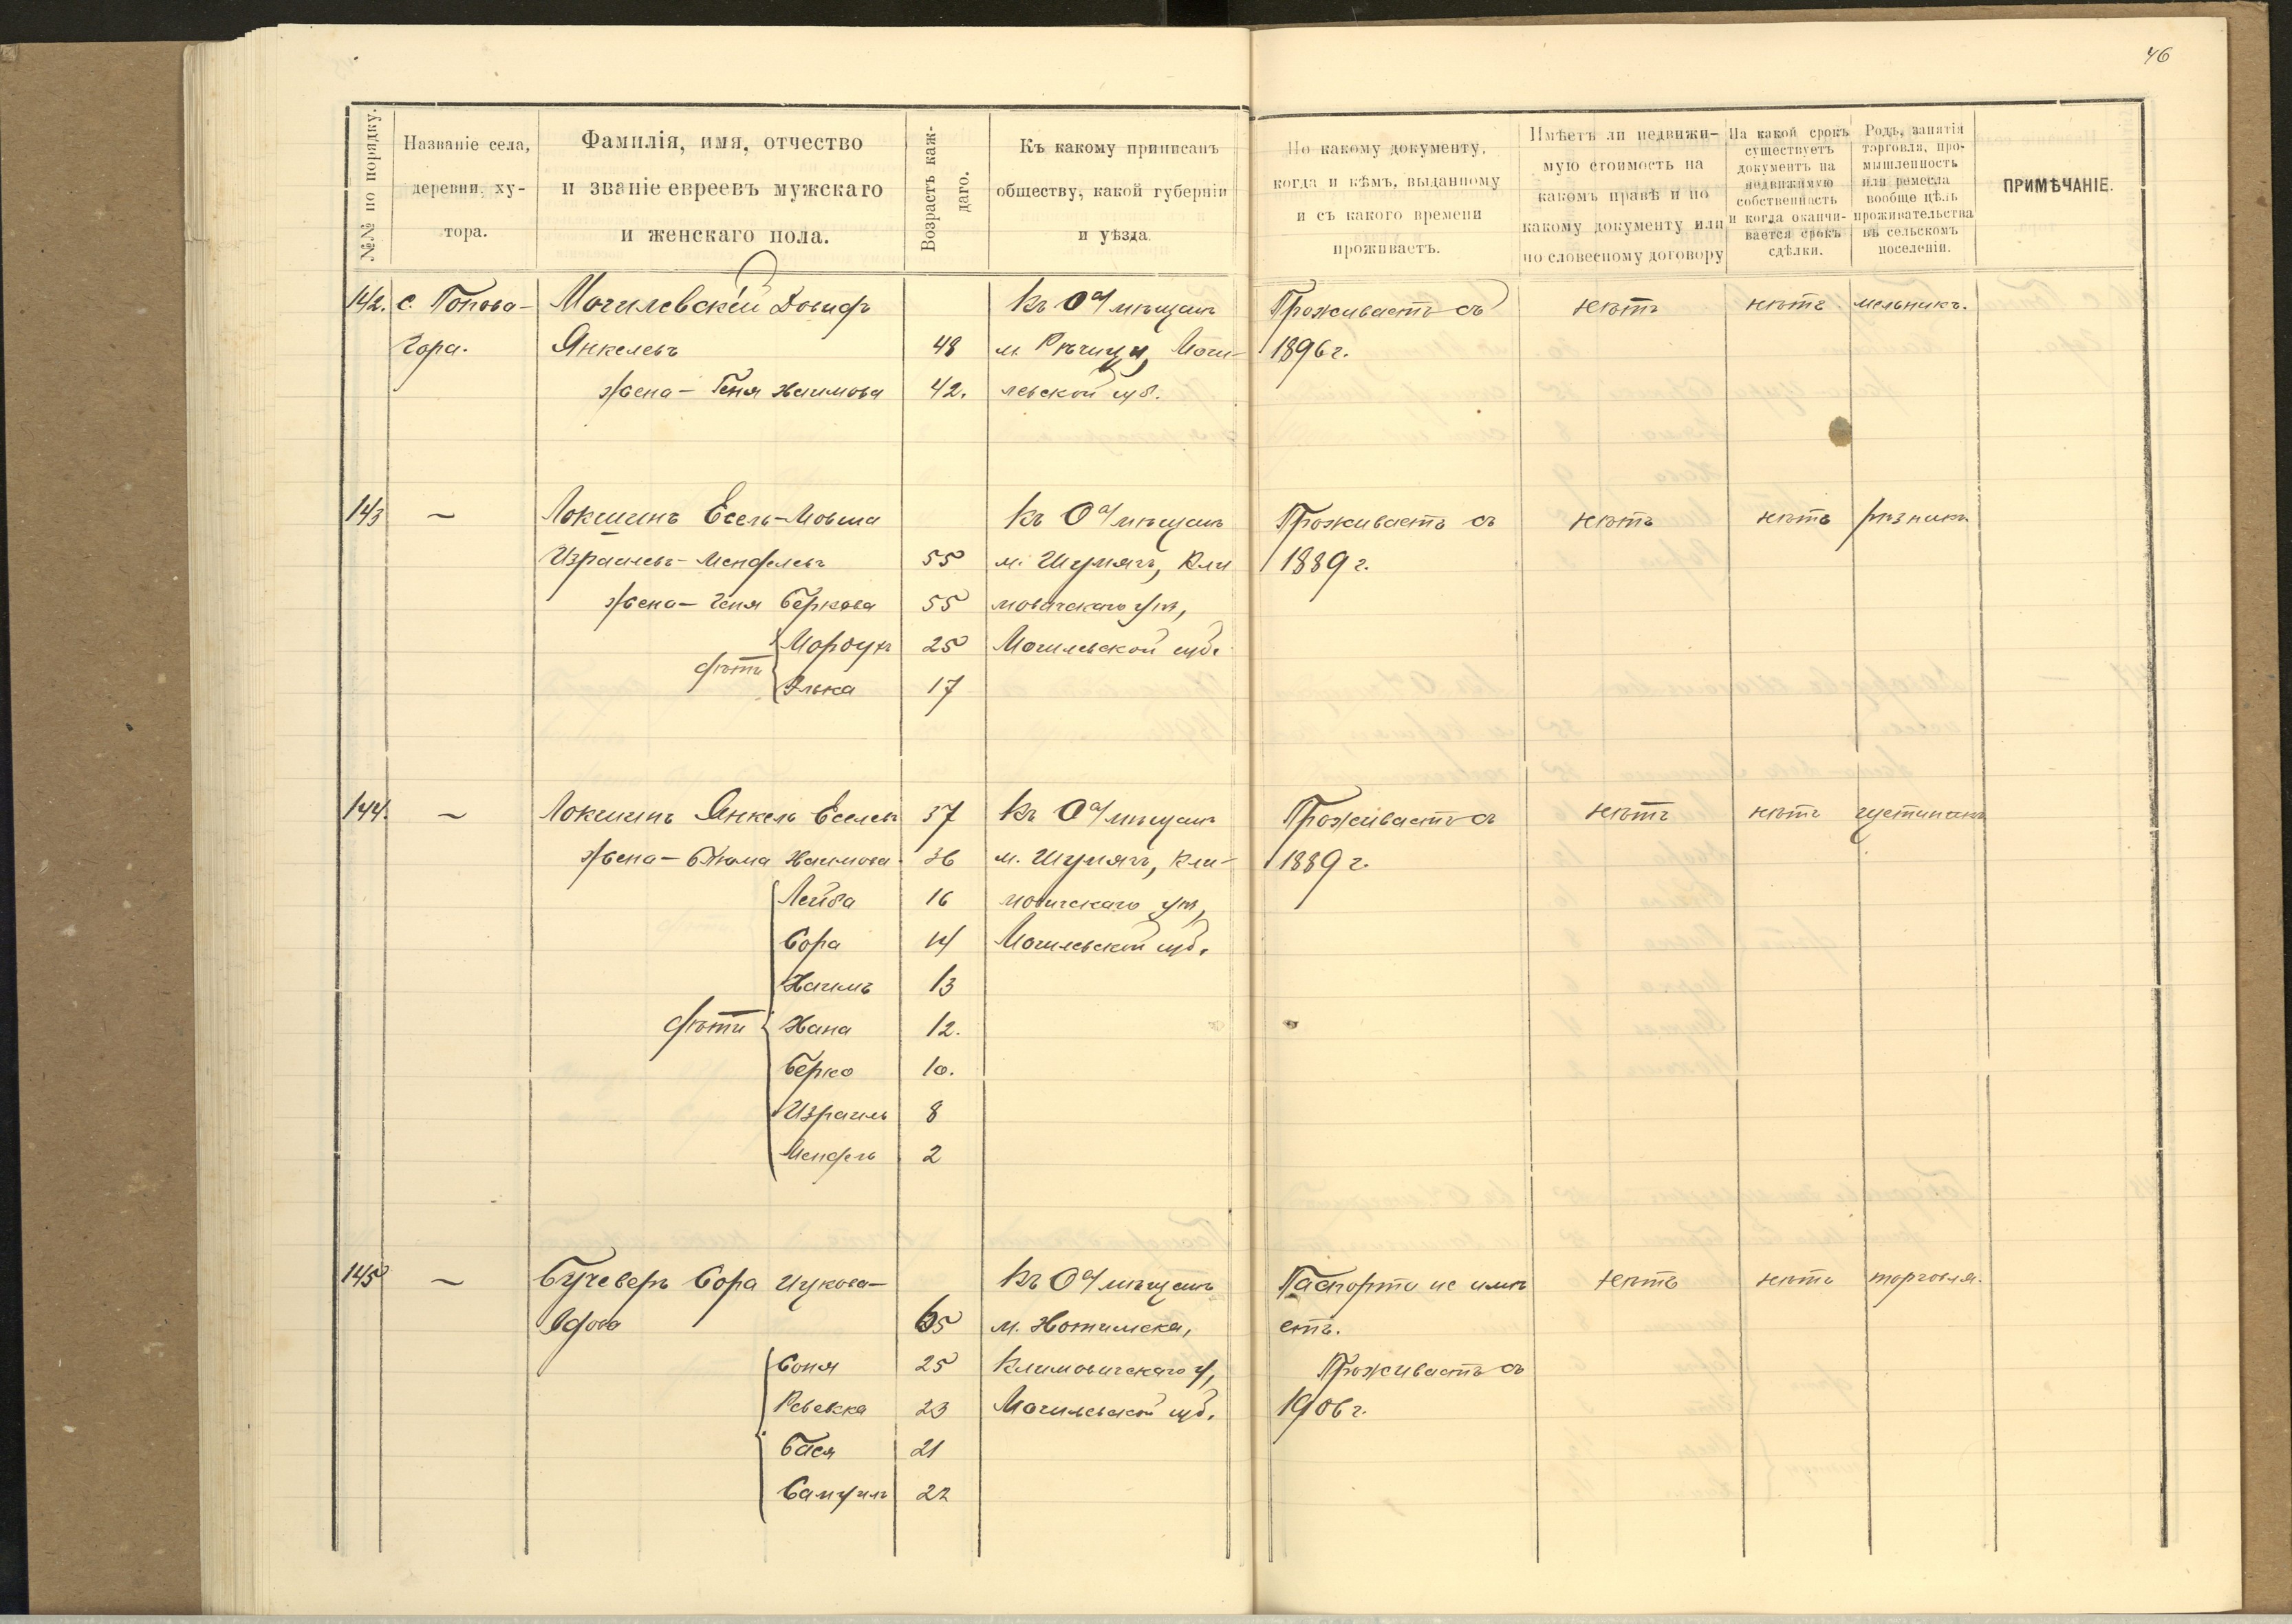 46
№№ по порядку.
Названіе села,
деревни, ху-
тора.
Фамилія, имя, отчество
и званіе евреевъ мужскаго
и женскаго пола.
Возрастъ каж-
даго.
Къ какому приписанъ
обществу, какой губерніи
и уѣзда
По какому документу,
когда и кѣмъ, выданному
и съ какого времени
проживаетъ.
Имѣетъ ли недвижи-
мую стоимость на
какомъ правѣ и по
какому документу или
по словесному договору
На какой срокъ
существуетъ
документъ на
недвижимую
собственность
и когда оканчи-
вается срокъ
сдѣлки.
Родъ, занятія
торговля, про-
мышленность
или ремесла
вообще цѣль
проживательства
въ сельскомъ
поселеніи.
ПРИМѢЧАНІЕ.
142. с. Попова- Могилевскій къ О/ мѣщанъ Проживаетъ съ нѣтъ нѣтъ мельникъ.
Гора. Янкелевъ 48 м. Рѣчицы, Моги- 1896 г.
жена - Геня Хаимова 42. левской губ.
143 — Локшинъ Есель-Мовша къ О/ мѣщанъ Проживаетъ съ нѣтъ нѣтъ рѣзникъ
Израилевъ-Менделевъ 55 м. Шумячъ, Кли 1889 г.
жена - Геня Беркова 55 мовичскаго у,
дѣти Мордухъ 25 Могилевской губ.
Элька 17
144. — Локшинъ Янкель Еселевъ 37 къ О/ мѣщанъ Проживаетъ съ нѣтъ нѣтъ
жена - Блюма Хаимова 36 м. Шумячъ, Кли- 1889 г.
Лейба 16 мовичскаго у,
Сора 14 Могилевской губ.
Хаимъ 13
дѣти Хана 12.
Берко 10.
Израиль 8
Мендель 2
145 — Бучеверъ Сора Ицкова- къ О/ мѣщанъ Паспорта не имѣ нѣтъ нѣтъ торговля.
Вдова 65 м. Хотимска, етъ.
Соня 25 Климовичскаго у, Проживаетъ съ
Ревекка 23 Могилевской губ. 1906 г.
Бася 21
Самуилъ 22